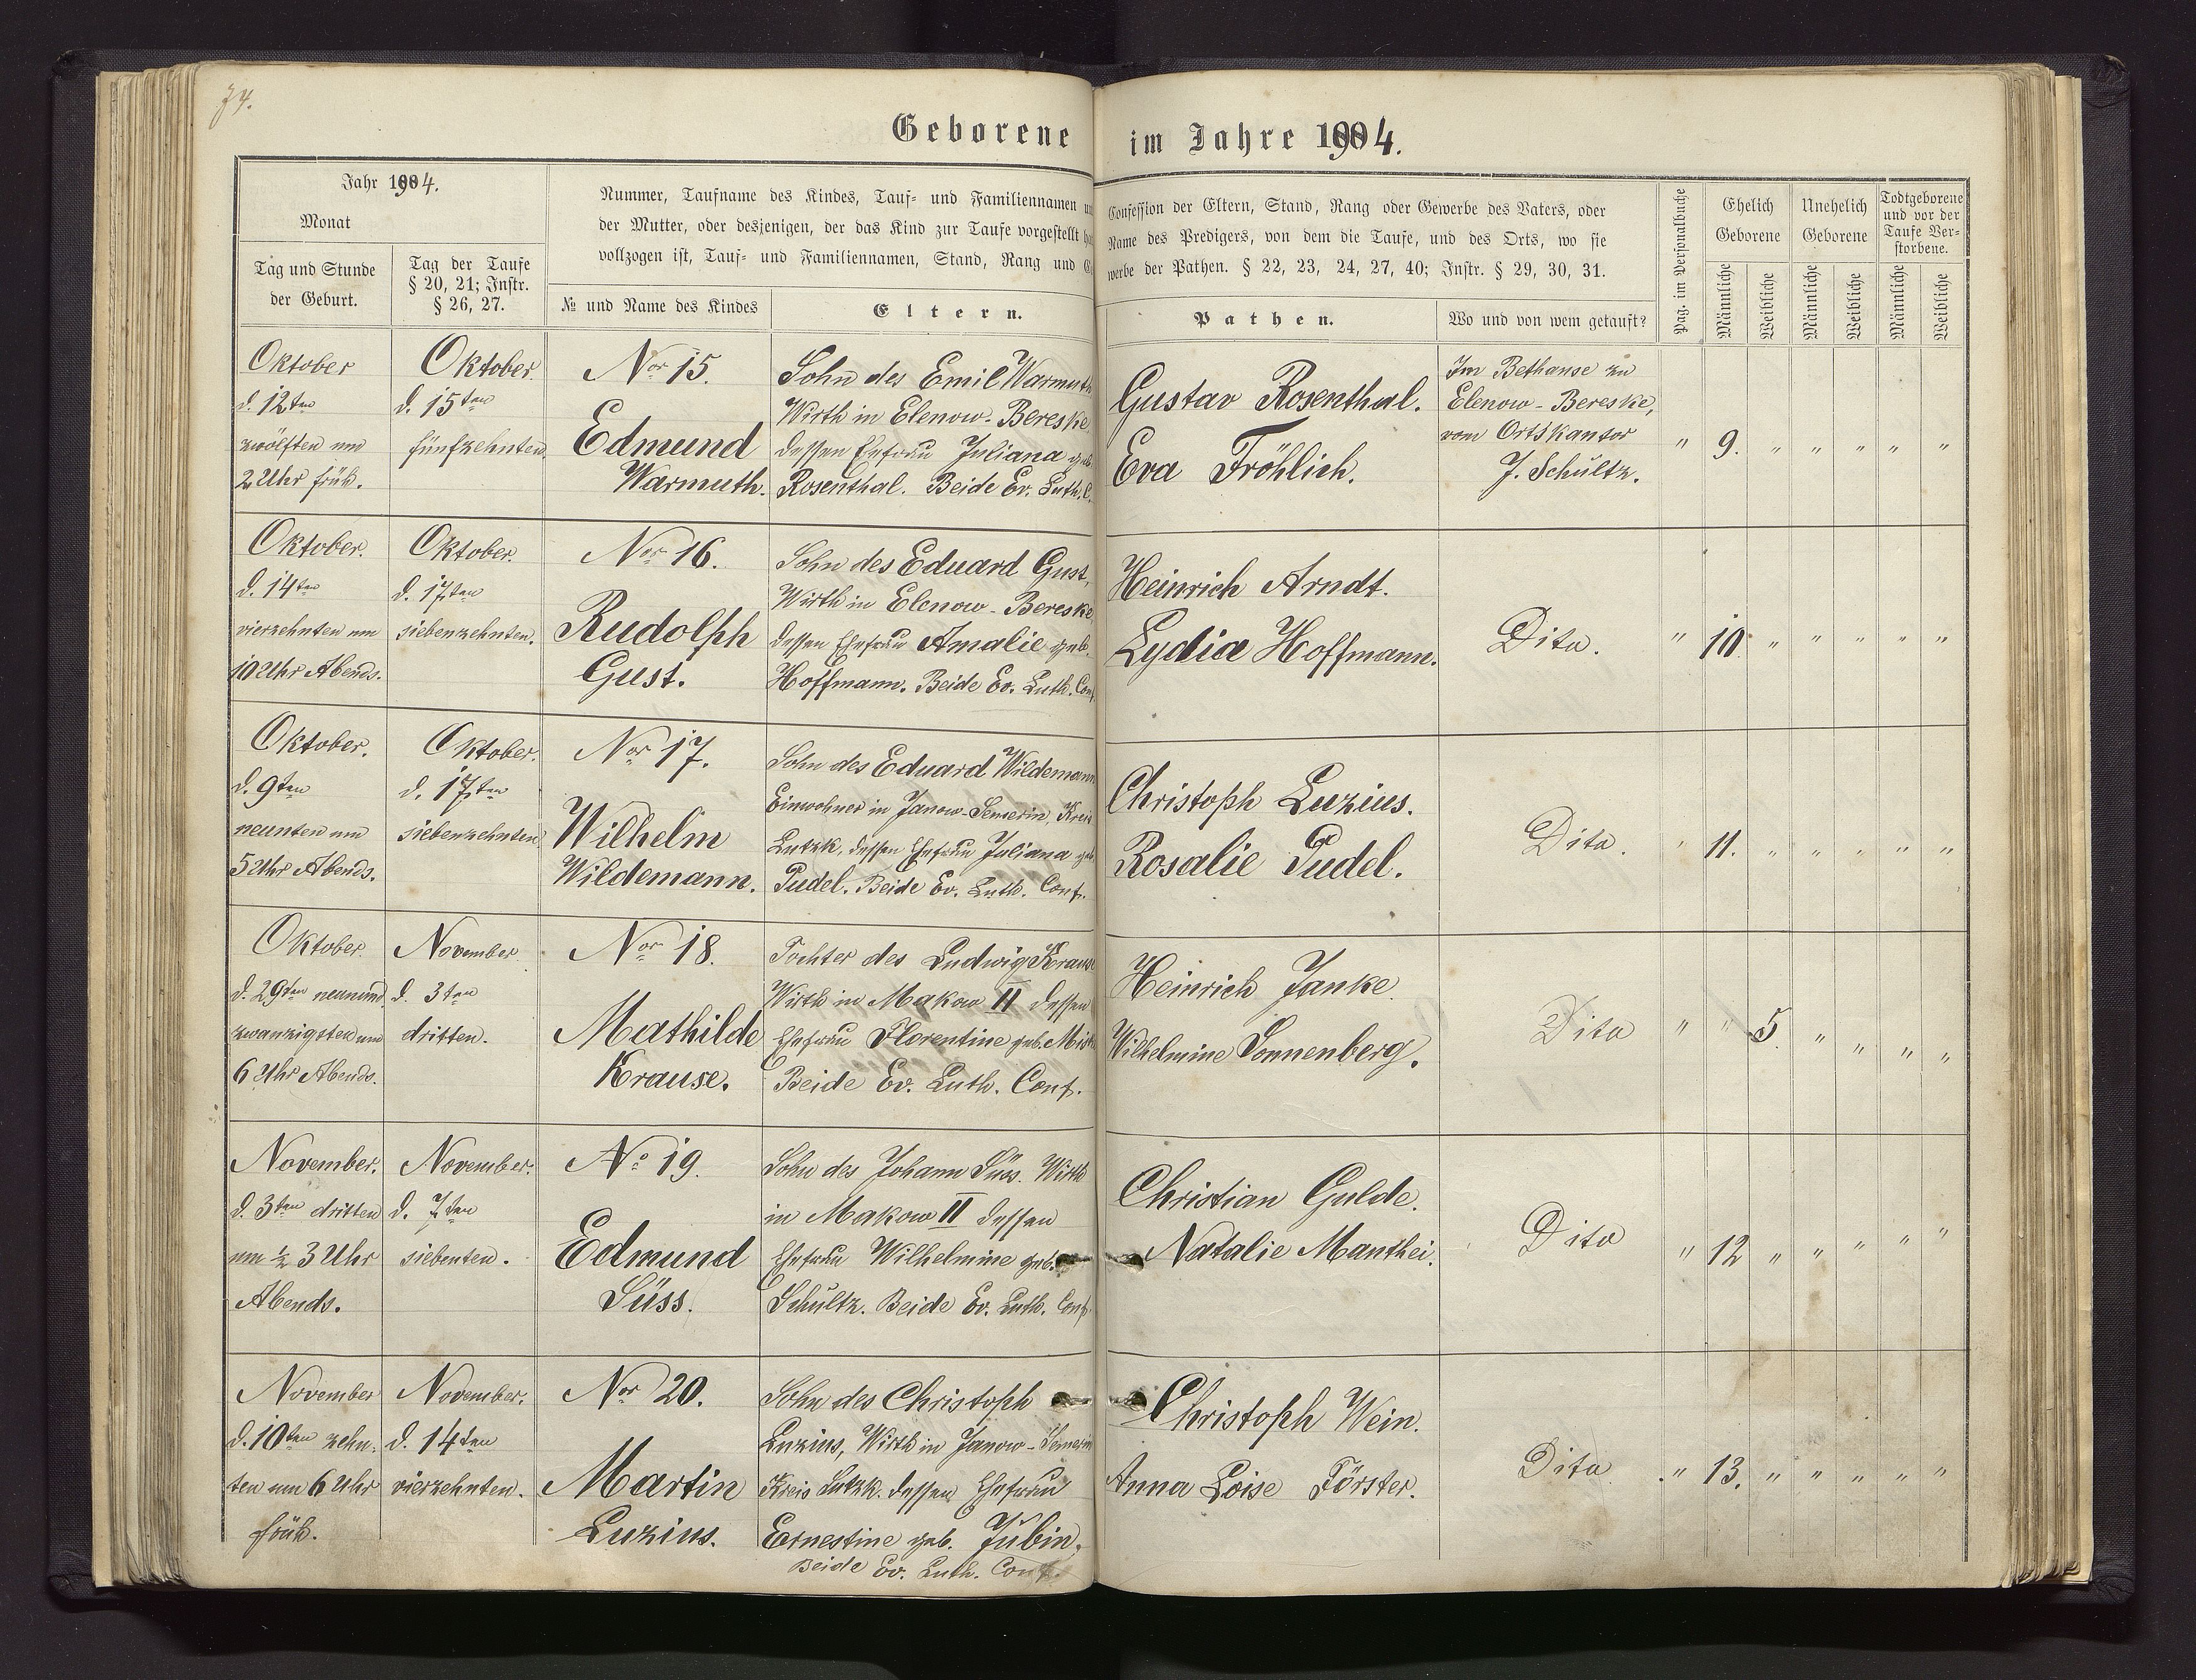 74.
Geborene im Jahre 1904.
Jahr 1904.
Monat
Tag und Stunde
der Geburt.
Tag der Taufe
§ 20, 21; Instr.
§ 26, 27.
Nummer, Taufname des Kindes, Tauf- und Familiennamen
der Mutter, oder desjenigen, der das Kind zur Taufe vorgestellt
vollzogen ist, Tauf- und Familiennamen, Stand, Rang und
№ und Name des Kindes
Eltern.
Confession der Eltern, Stand, Rang oder Gewerbe des Vaters, oder
Name des Predigers, von dem die Taufe, und des Orts, wo sie
werbe der Pathen. § 22, 23, 24, 27, 40; Instr. § 29, 30, 31.
Pathen.
Wo und von wem getauft?
Pag. im Personalbuche
Ehelich
Geborene
Unehelich
Geborene
Todtgeborene
und vor der
Taufe Ver-
storbene.
Männliche
Weibliche
Männliche
Weibliche
Männliche
Weibliche
Oktober
d. 12ten
zwölften um
2 Uhr früh.
Oktober
d. 15ten
fünfzehnten.
Nor 15.
Edmund
Warmuth.
Sohn des Emil Warmuth
Wirth in Elenow-Bereske,
dessen Ehefrau Juliana geb.
Rosenthal. Beide Ev. Luth. C.
Gustav Rosenthal.
Eva Fröhlich.
Im Bethause zu
Elenow-Bereske,
vom Ortskantor
J. Schultz.
" 9. " " " " "
Oktober.
d. 14ten
vierzehnten um
10 Uhr Abends.
Oktober.
d. 17ten
siebenzehnten.
Nor 16.
Rudolph
Gust.
Sohn des Eduard Gust,
Wirth in Elenow-Bereske
dessen Ehefrau Amalie geb.
Hoffmann. Beide Ev. Luth. Conf.
Heinrich Arndt.
Lydia Hoffmann.
Dito.
" 10 " " " " "
Oktober.
d. 9ten
neunten um
5 Uhr Abends.
Oktober.
d. 17ten
siebenzehnten
Nor 17.
Wilhelm
Wildemann.
Sohn des Eduard Wildemann
Einwohner in Janow-Semerin, Kreis
Lutzk, dessen Ehefrau Juliana geb.
Pudel. Beide Ev. Luth. Conf.
Christoph Luzius.
Rosalie Pudel.
Dito.
" 11. " " " " "
Oktober.
d. 29ten neunund
zwanzigsten um
6 Uhr Abends.
November.
d. 3ten
dritten.
Nor 18.
Mathilde
Krause.
Tochter des Ludwig Krause
Wirth in Makow II dessen
Ehefrau Florentine geb.
Beide Ev. Luth. Conf.
Heinrich Janke.
Wilhelmine Sonnenberg.
Dito
" " 5. " " " "
November.
d. 3ten dritten
um ½ 3 Uhr
Abends.
November.
d. 7ten
siebenten.
No 19.
Edmund
Süss.
Sohn des Johann Süss. Wirth
in Makow II dessen
Ehefrau Wilhelmine geb.
Schultz. Beide Ev. Luth. Conf.
Christian Gulde.
Natalie Manthei.
Dito
" 12 " " " " "
November
d. 10ten zehn-
ten um 6 Uhr
früh.
November.
d. 14ten
vierzehnten.
Nor 20.
Martin
Luzius.
Sohn des Christoph
Luzius, Wirth in Janow-Semerin
Kreis Lutzk. dessen Ehefrau
Ernestine geb. Jubin,
Beide Ev. Luth. Conf.
Christoph Wein.
Anna Loise Förster.
Dito.
" 13. " " " " "